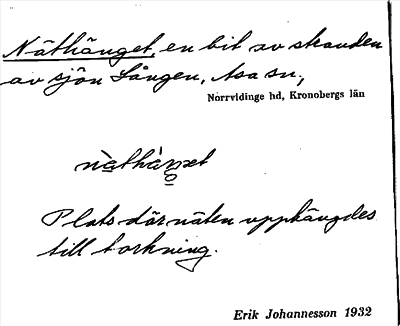 Näthänget, en bit av stranden
av sjön Sången, Asa sn,
Norrvidinge hd, Kronobergs län
Plats där näten upphängdes
till torkning.
Erik Johannesson 1932